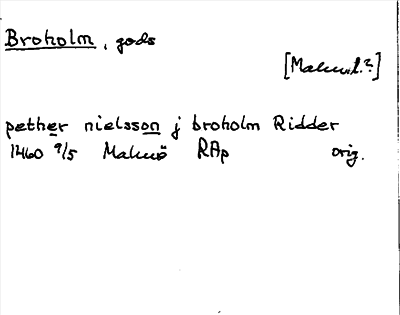 Broholm, gods
[Malmö l.?]
pether nielsson j broholm Ridder
1460 9/5 Malmö RAp orig.